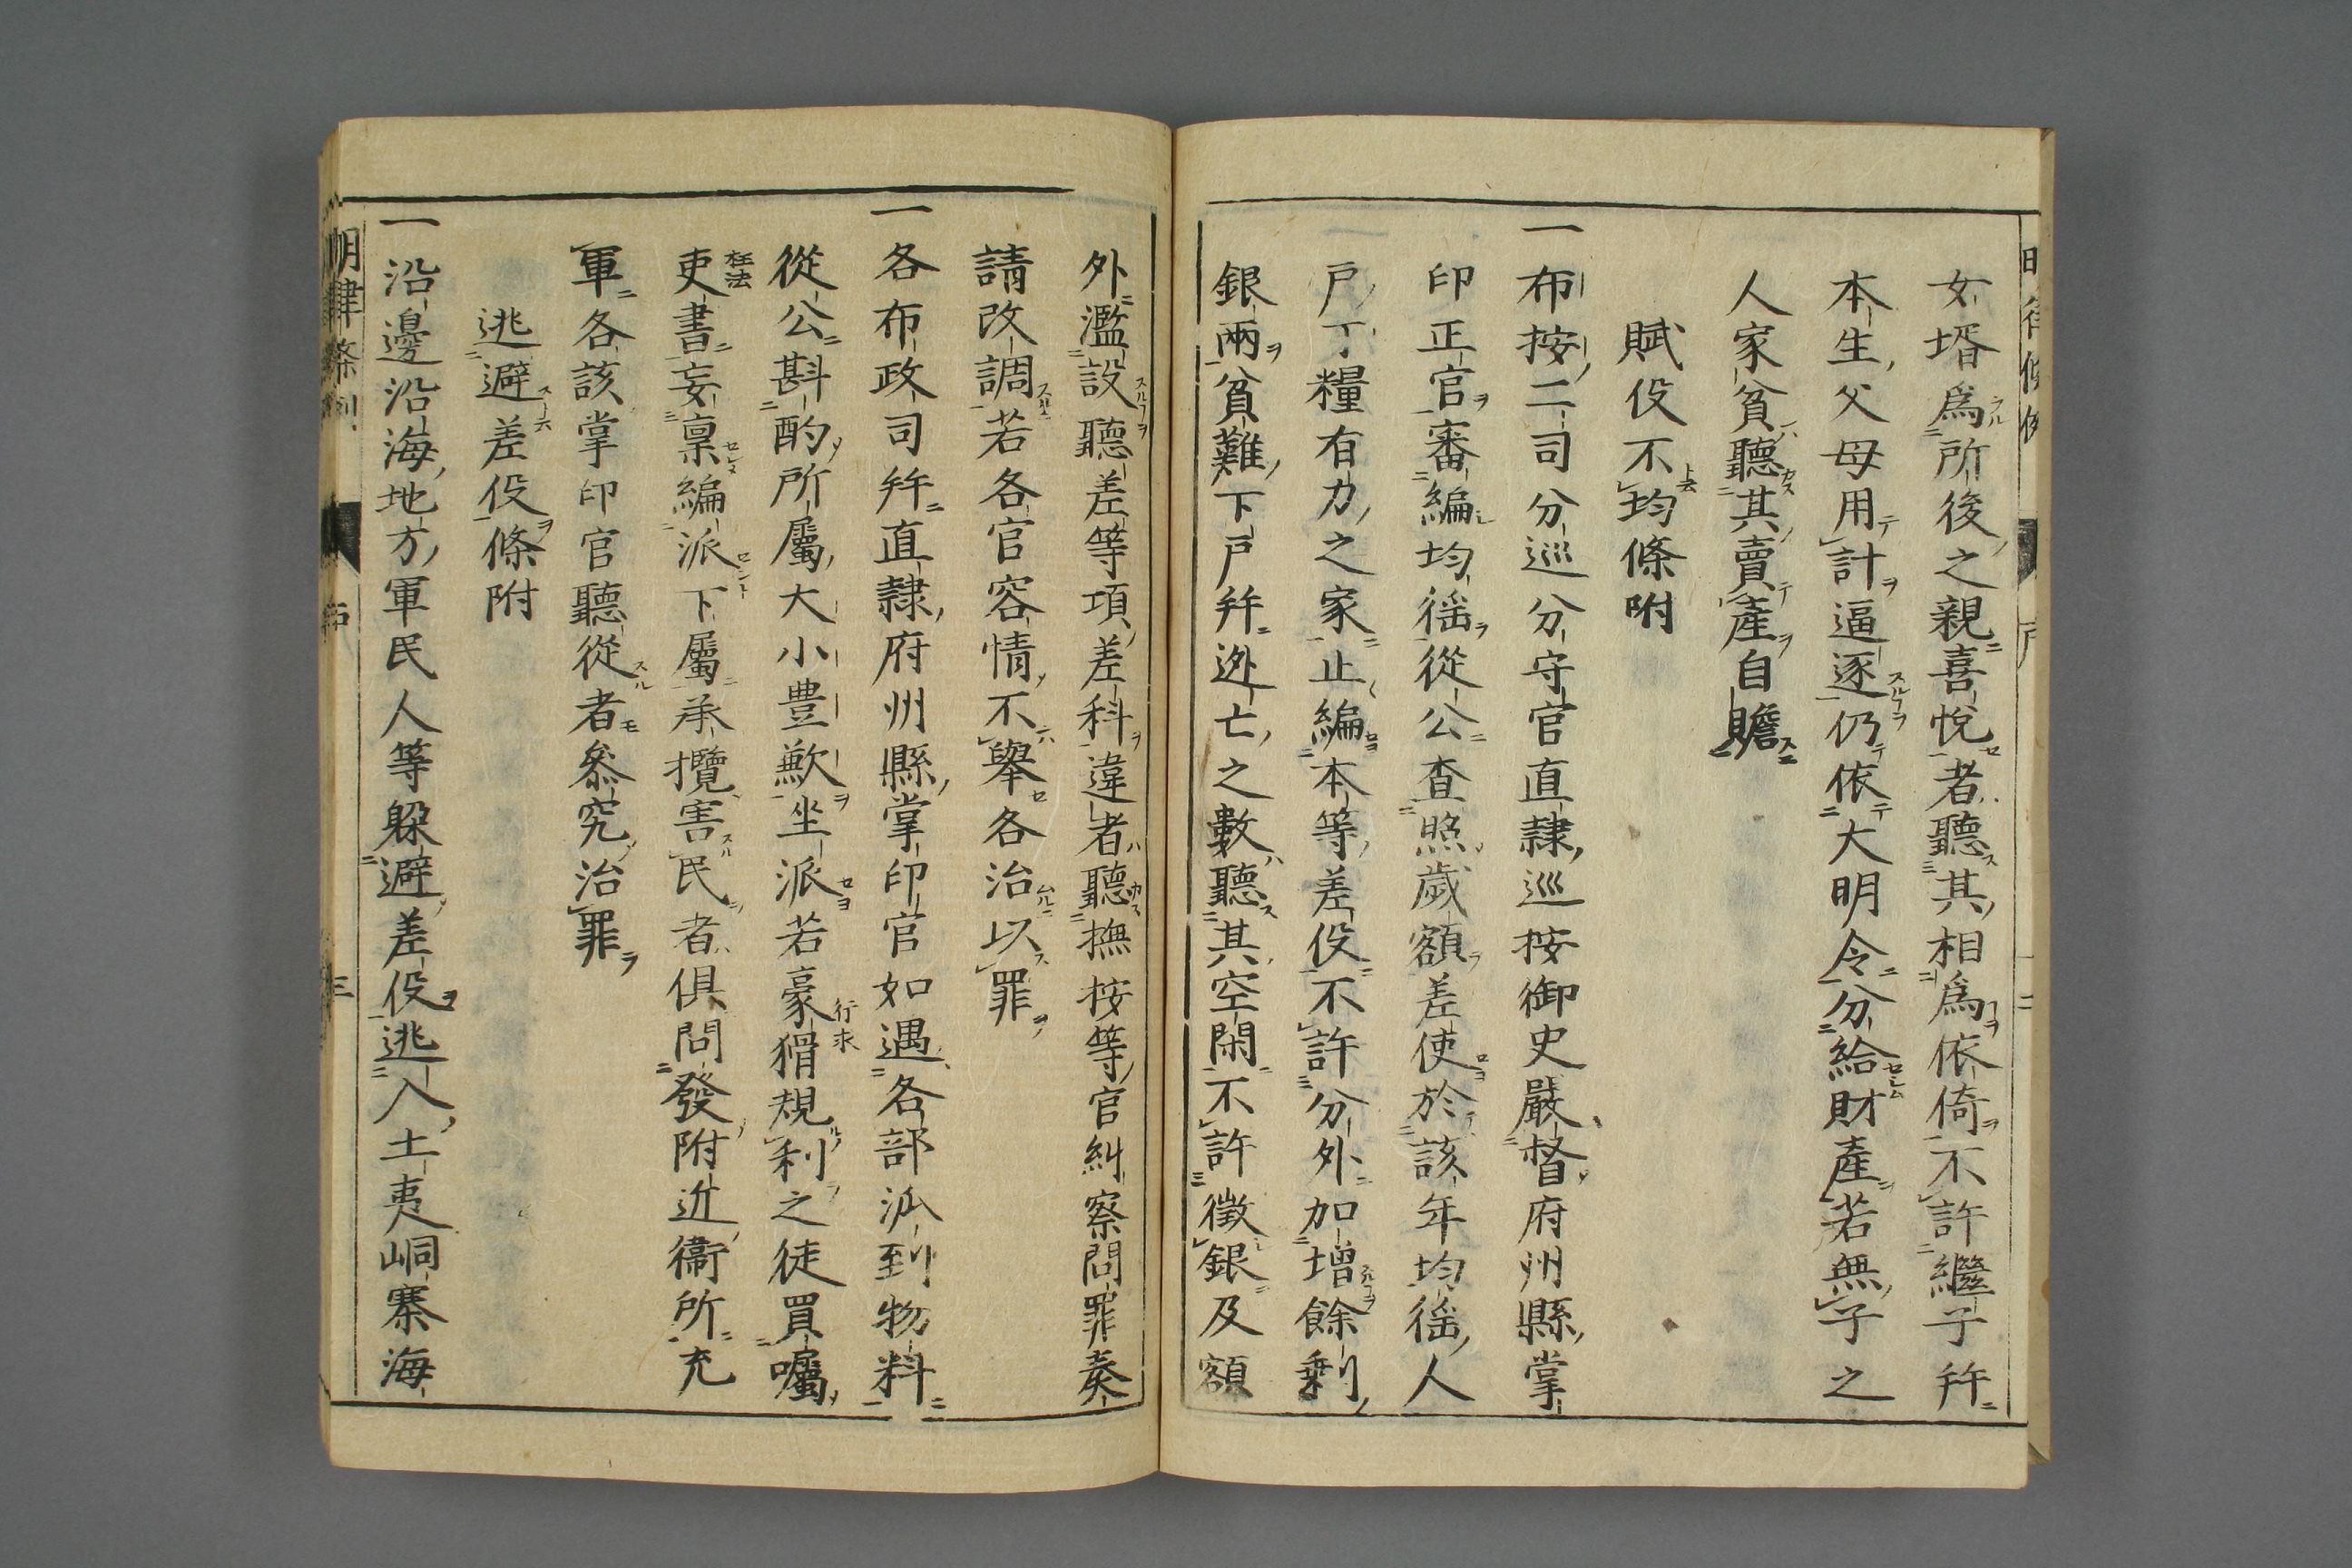 女壻爲所後之親喜悅者聽其相爲依倚不許繼子幷
本生父母用計逼逐仍依大明令分給財產若無子之
人家貧聽其賣產自贍
賦役不均條附
一布按二司分巡分守官直隷巡按御史嚴督府州縣掌
印正官審編均徭從公查照歲額差使於該年均徭人
戶丁糧有力之家止編本等差役不許分外加增餘剩
銀兩貧難下戶幷逃亡之數聽其空閑不許徵銀及額
外濫設聽差等項差科違者聽撫按等官糾察問罪奏
請改調若各官容情不擧各治以罪
一各布政司幷直隷府州縣掌印官如遇各部派到物料
從公斟酌所屬大小豊歉坐派若豪猾規利之徒買囑
吏書妄禀編派下屬承攬害民者俱問發附近衞所充
軍各該掌印官聽從者叅究治罪
逃避差役條附
一沿邊沿海地方軍民人等躱避差役逃入土夷峒寨海
明律條例
三